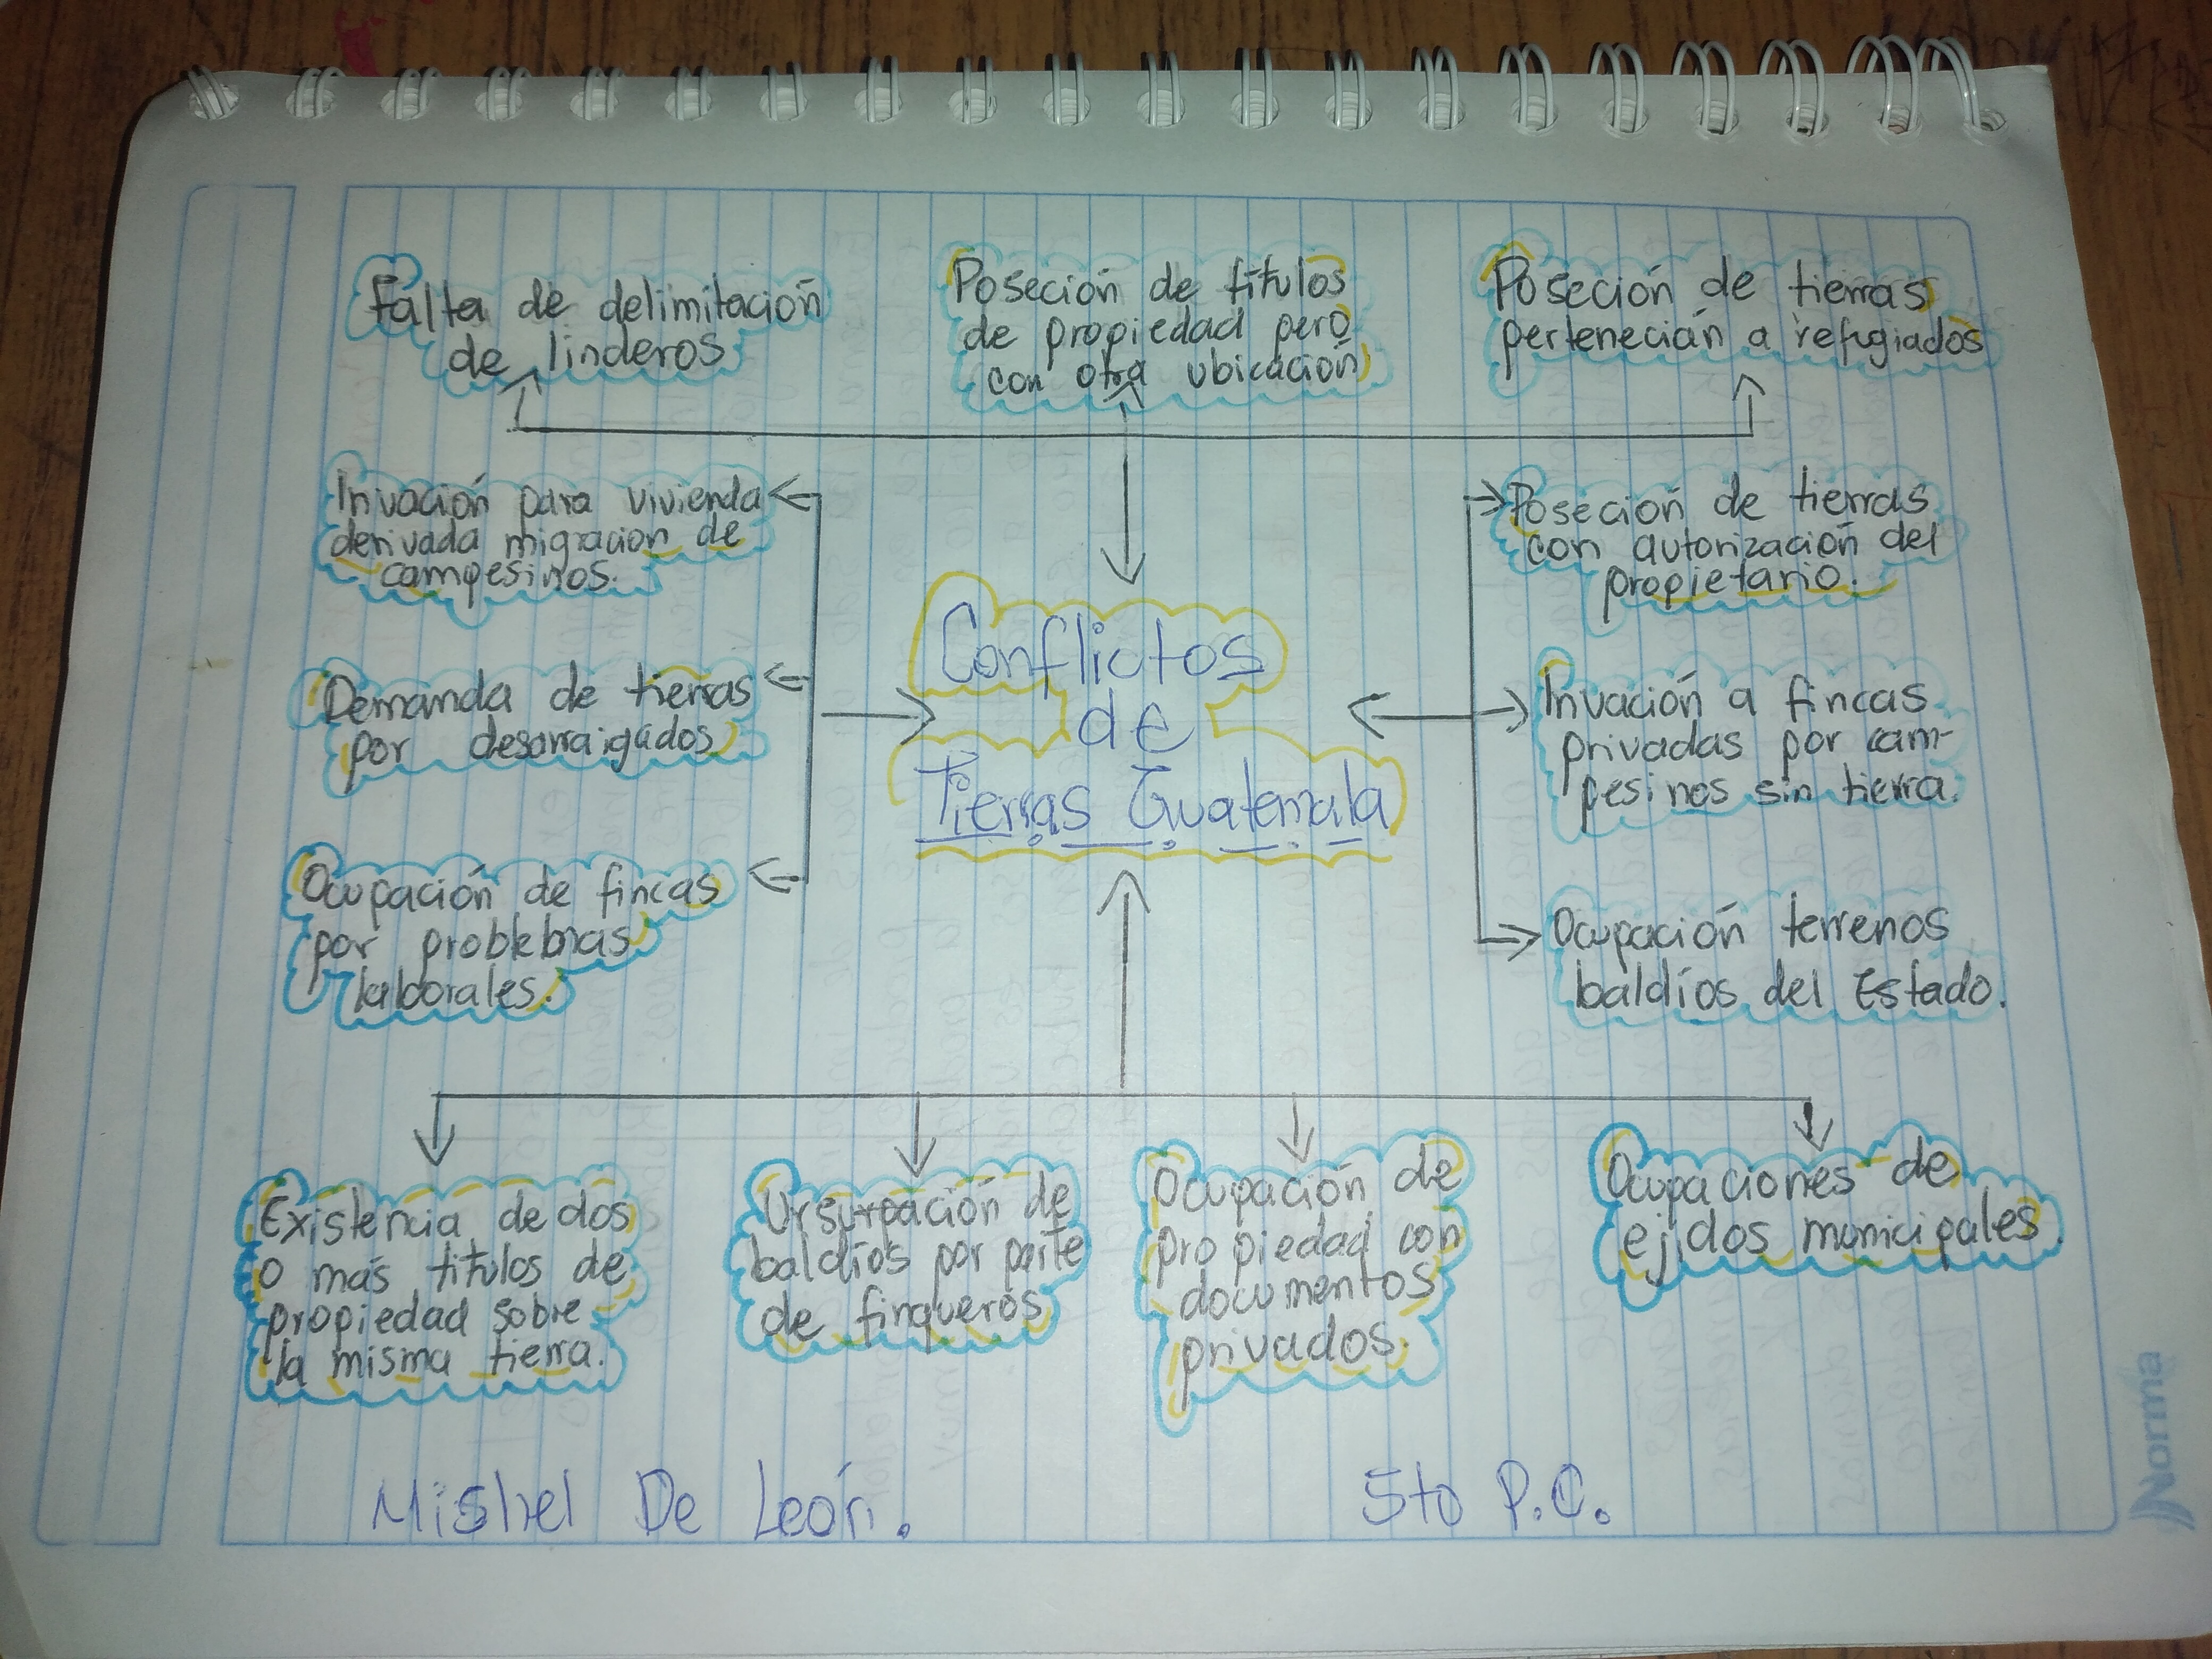 Falta de delimitación
de linderos
Poseción de títulos
de propiedad pero
con otra ubicación
Poseción de tierras
pertenecián a refugiados
Invación para vivienda
derivada migracion de
campesinos.
Demanda de tierras
por desarraigados
Ocupación de fincas
por problebmas
laborales.
Conflictos
de
Tierras Guatemala
Poseción de tierras
con autorización del
propietario.
Invación a fincas
privadas por cam-
pesinos sin tierra.
Ocupación terrenos
baldíos del Estado.
Existencia de dos
o más titulos de
propiedad sobre
la misma tierra.
Ursurpación de
baldíos por parte
de finqueros
Ocupación de
propiedad con
documentos
privados.
Ocupaciones de
ejidos municipales.
Mishel De León.
5to P.C.
Norma